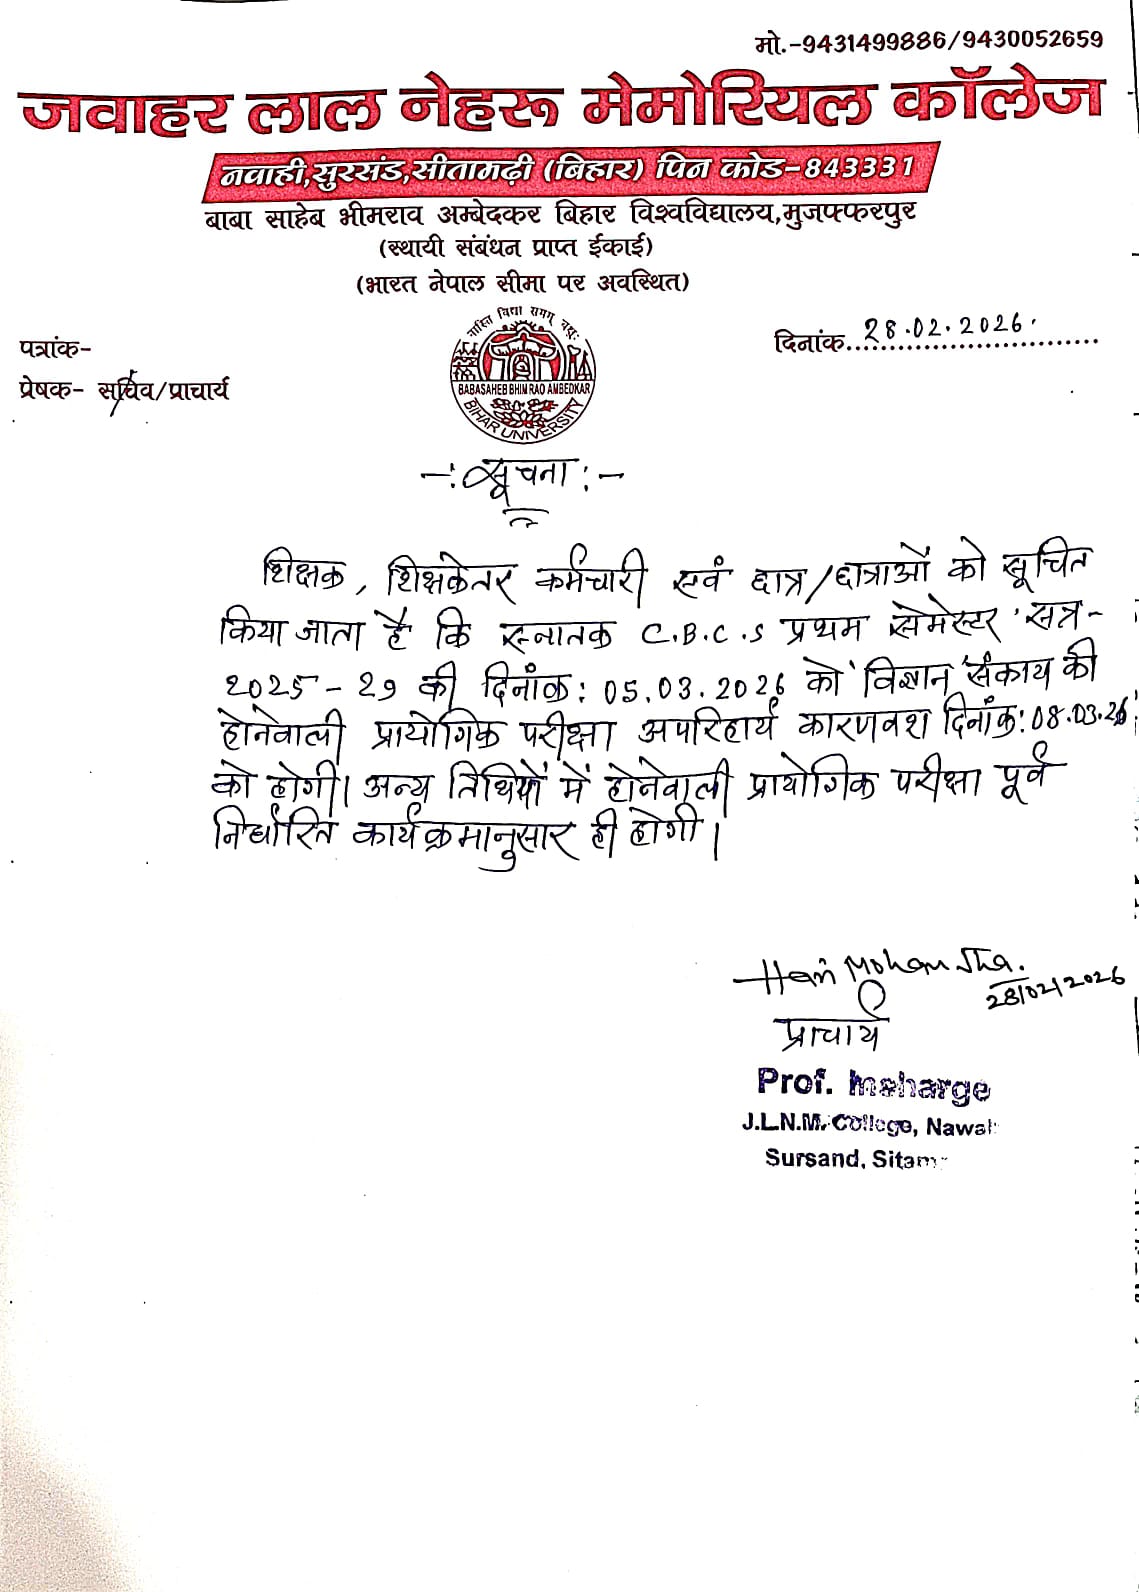 मो.-9431499886/9430052659
जवाहर लाल नेहरू मेमोरियल कॉलेज
नवाही,सुरसंड,सीतामढ़ी (बिहार) पिन कोड-843331
बाबा साहेब भीमराव अम्बेदकर बिहार विश्वविद्यालय,मुजफ्फरपुर
(स्थायी संबंधन प्राप्त ईकाई)
(भारत नेपाल सीमा पर अवस्थित)
पत्रांक-
दिनांक..28.02.2026.
प्रेषक- सचिव/प्राचार्य
BABASAHEB BHIM RAO AMBEDKAR
BIHAR UNIVERSITY
-: सूचना :-
शिक्षक, शिक्षकेतर कर्मचारी एवं छात्र/छात्राओं को सूचित
किया जाता है कि स्नातक C.B.C.S प्रथम सेमेस्टर सत्र-
2025-29 की दिनांक: 05.03.2026 को विज्ञान संकाय की
होनेवाली प्रायोगिक परीक्षा अपरिहार्य कारणवश दिनांक: 08.03.26
को होगी। अन्य तिथियों में होनेवाली प्रायोगिक परीक्षा पूर्व
निर्धारित कार्यक्रमानुसार ही होगी।
Hari Mohan Jha.
28/02/2026
प्राचार्य
Prof. Incharge
J.L.N.M. College, Nawah
Sursand, Sitam